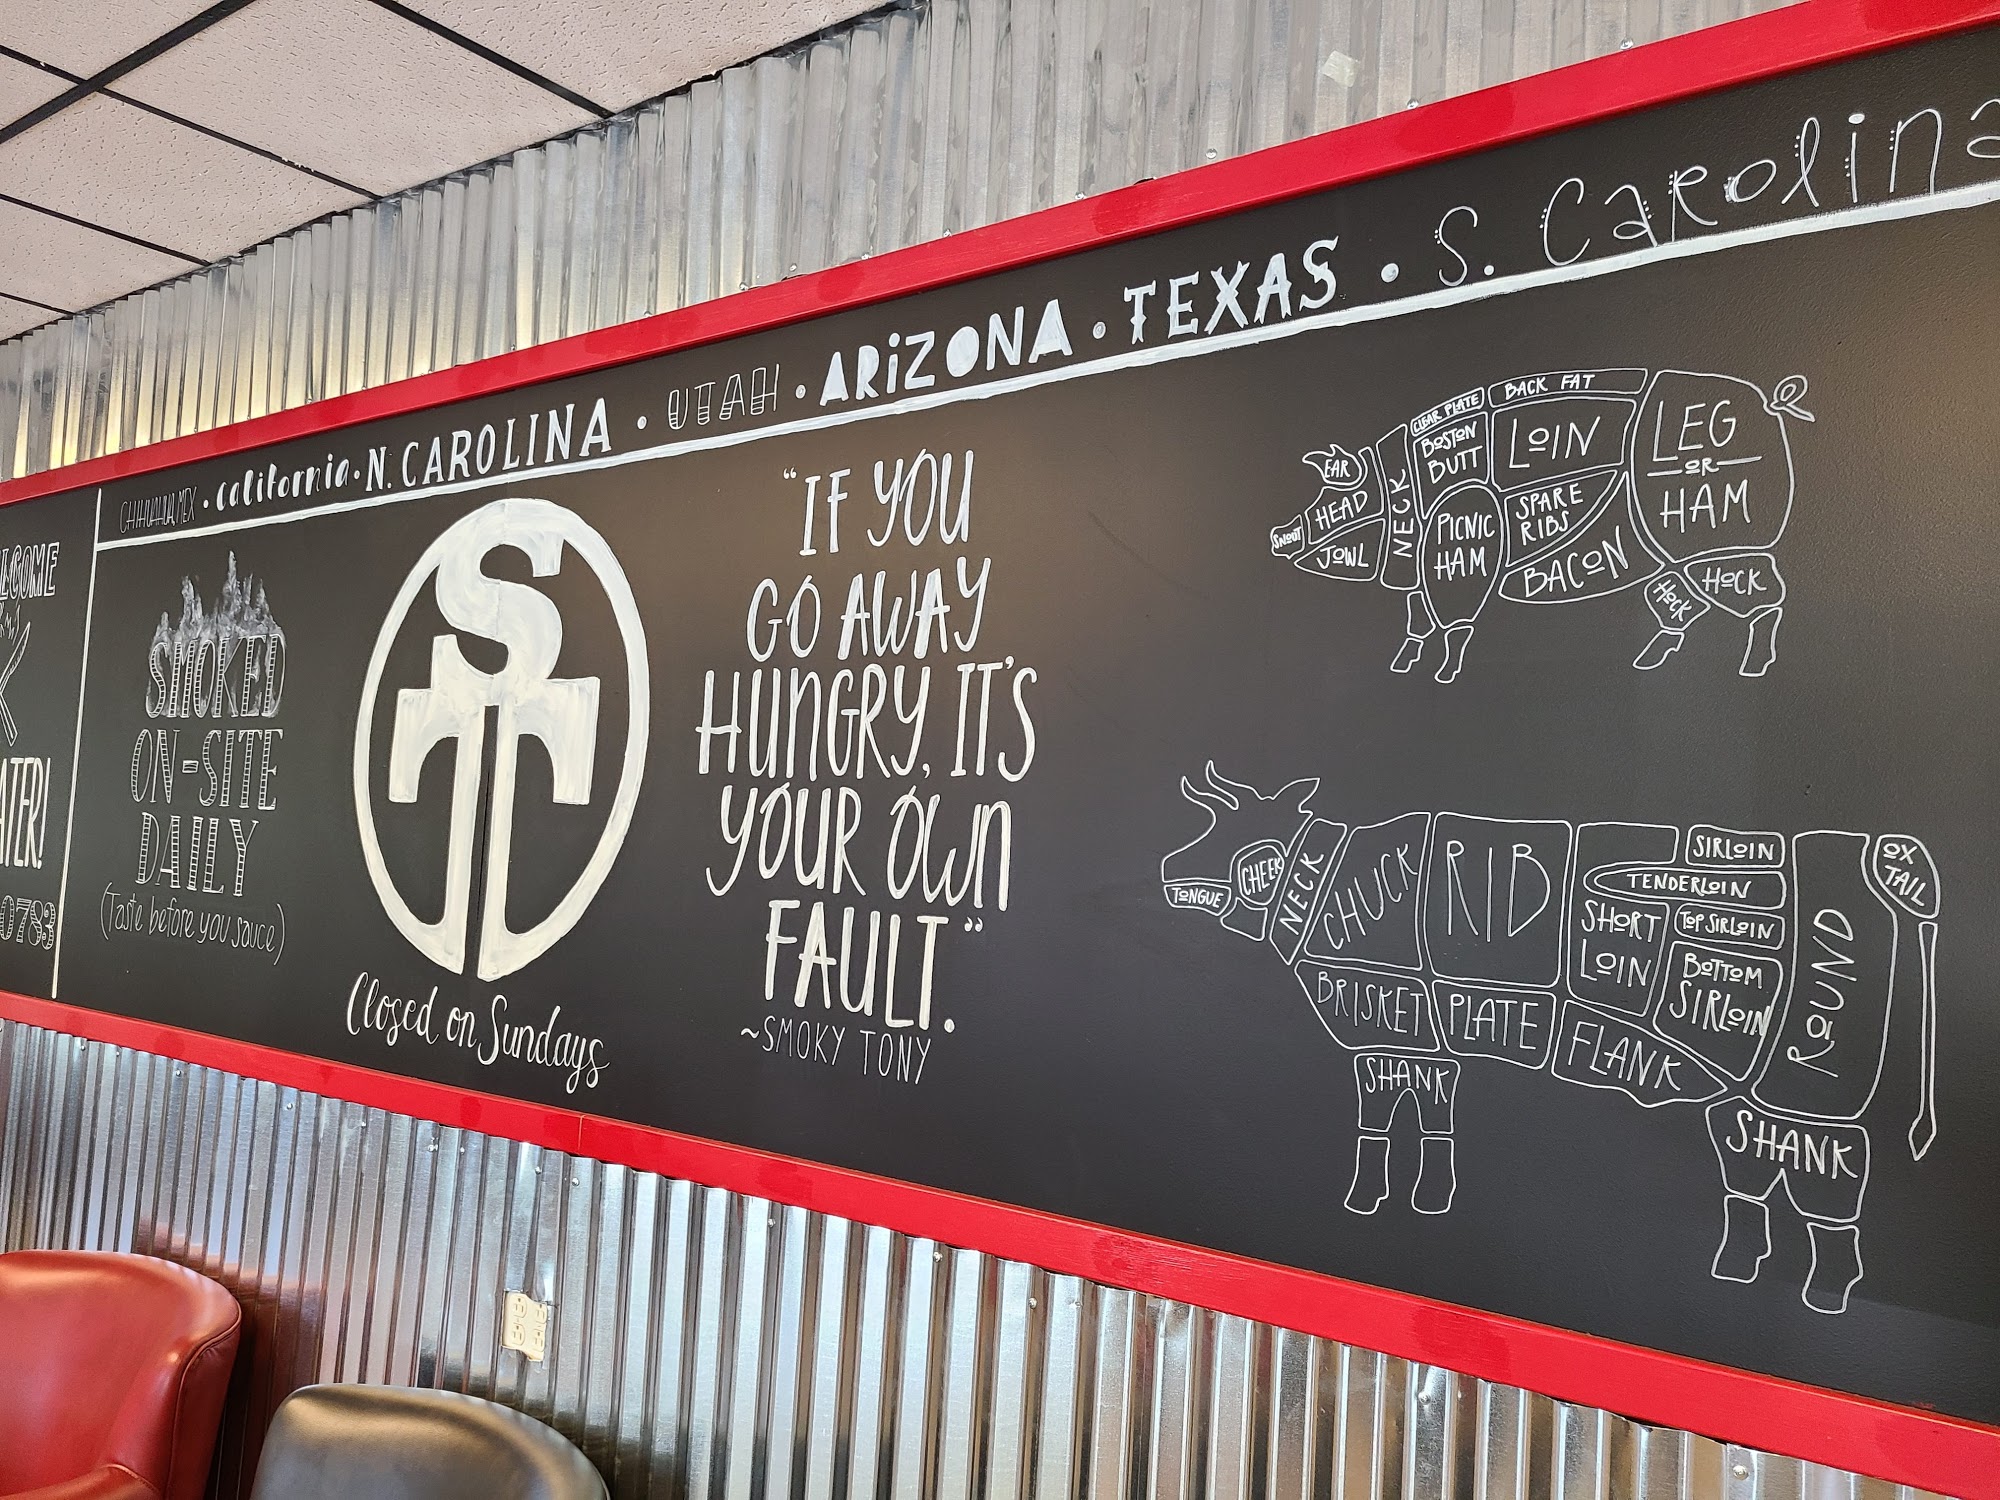 CHIHUAHUA, MEX • California • N. CAROLINA • UTAH • ARIZONA • TEXAS • S. Carolina
SMOKED
ON-SITE
DAILY
(Taste before you sauce)
ST
Closed on Sundays
"IF YOU
GO AWAY
HUNGRY, IT'S
YOUR OWN
FAULT."
~SMOKY TONY
CLEAR PLATE
BACK FAT
EAR
HEAD
SNOUT
JOWL
NECK
BOSTON
BUTT
LOIN
LEG
OR
HAM
PICNIC
HAM
SPARE
RIBS
BACON
HOCK
HOCK
TONGUE
CHEEK
NECK
CHUCK
RIB
SIRLOIN
TENDERLOIN
SHORT
LOIN
TOP SIRLOIN
BOTTOM
SIRLOIN
ROUND
OX
TAIL
BRISKET
PLATE
FLANK
SHANK
SHANK
0783